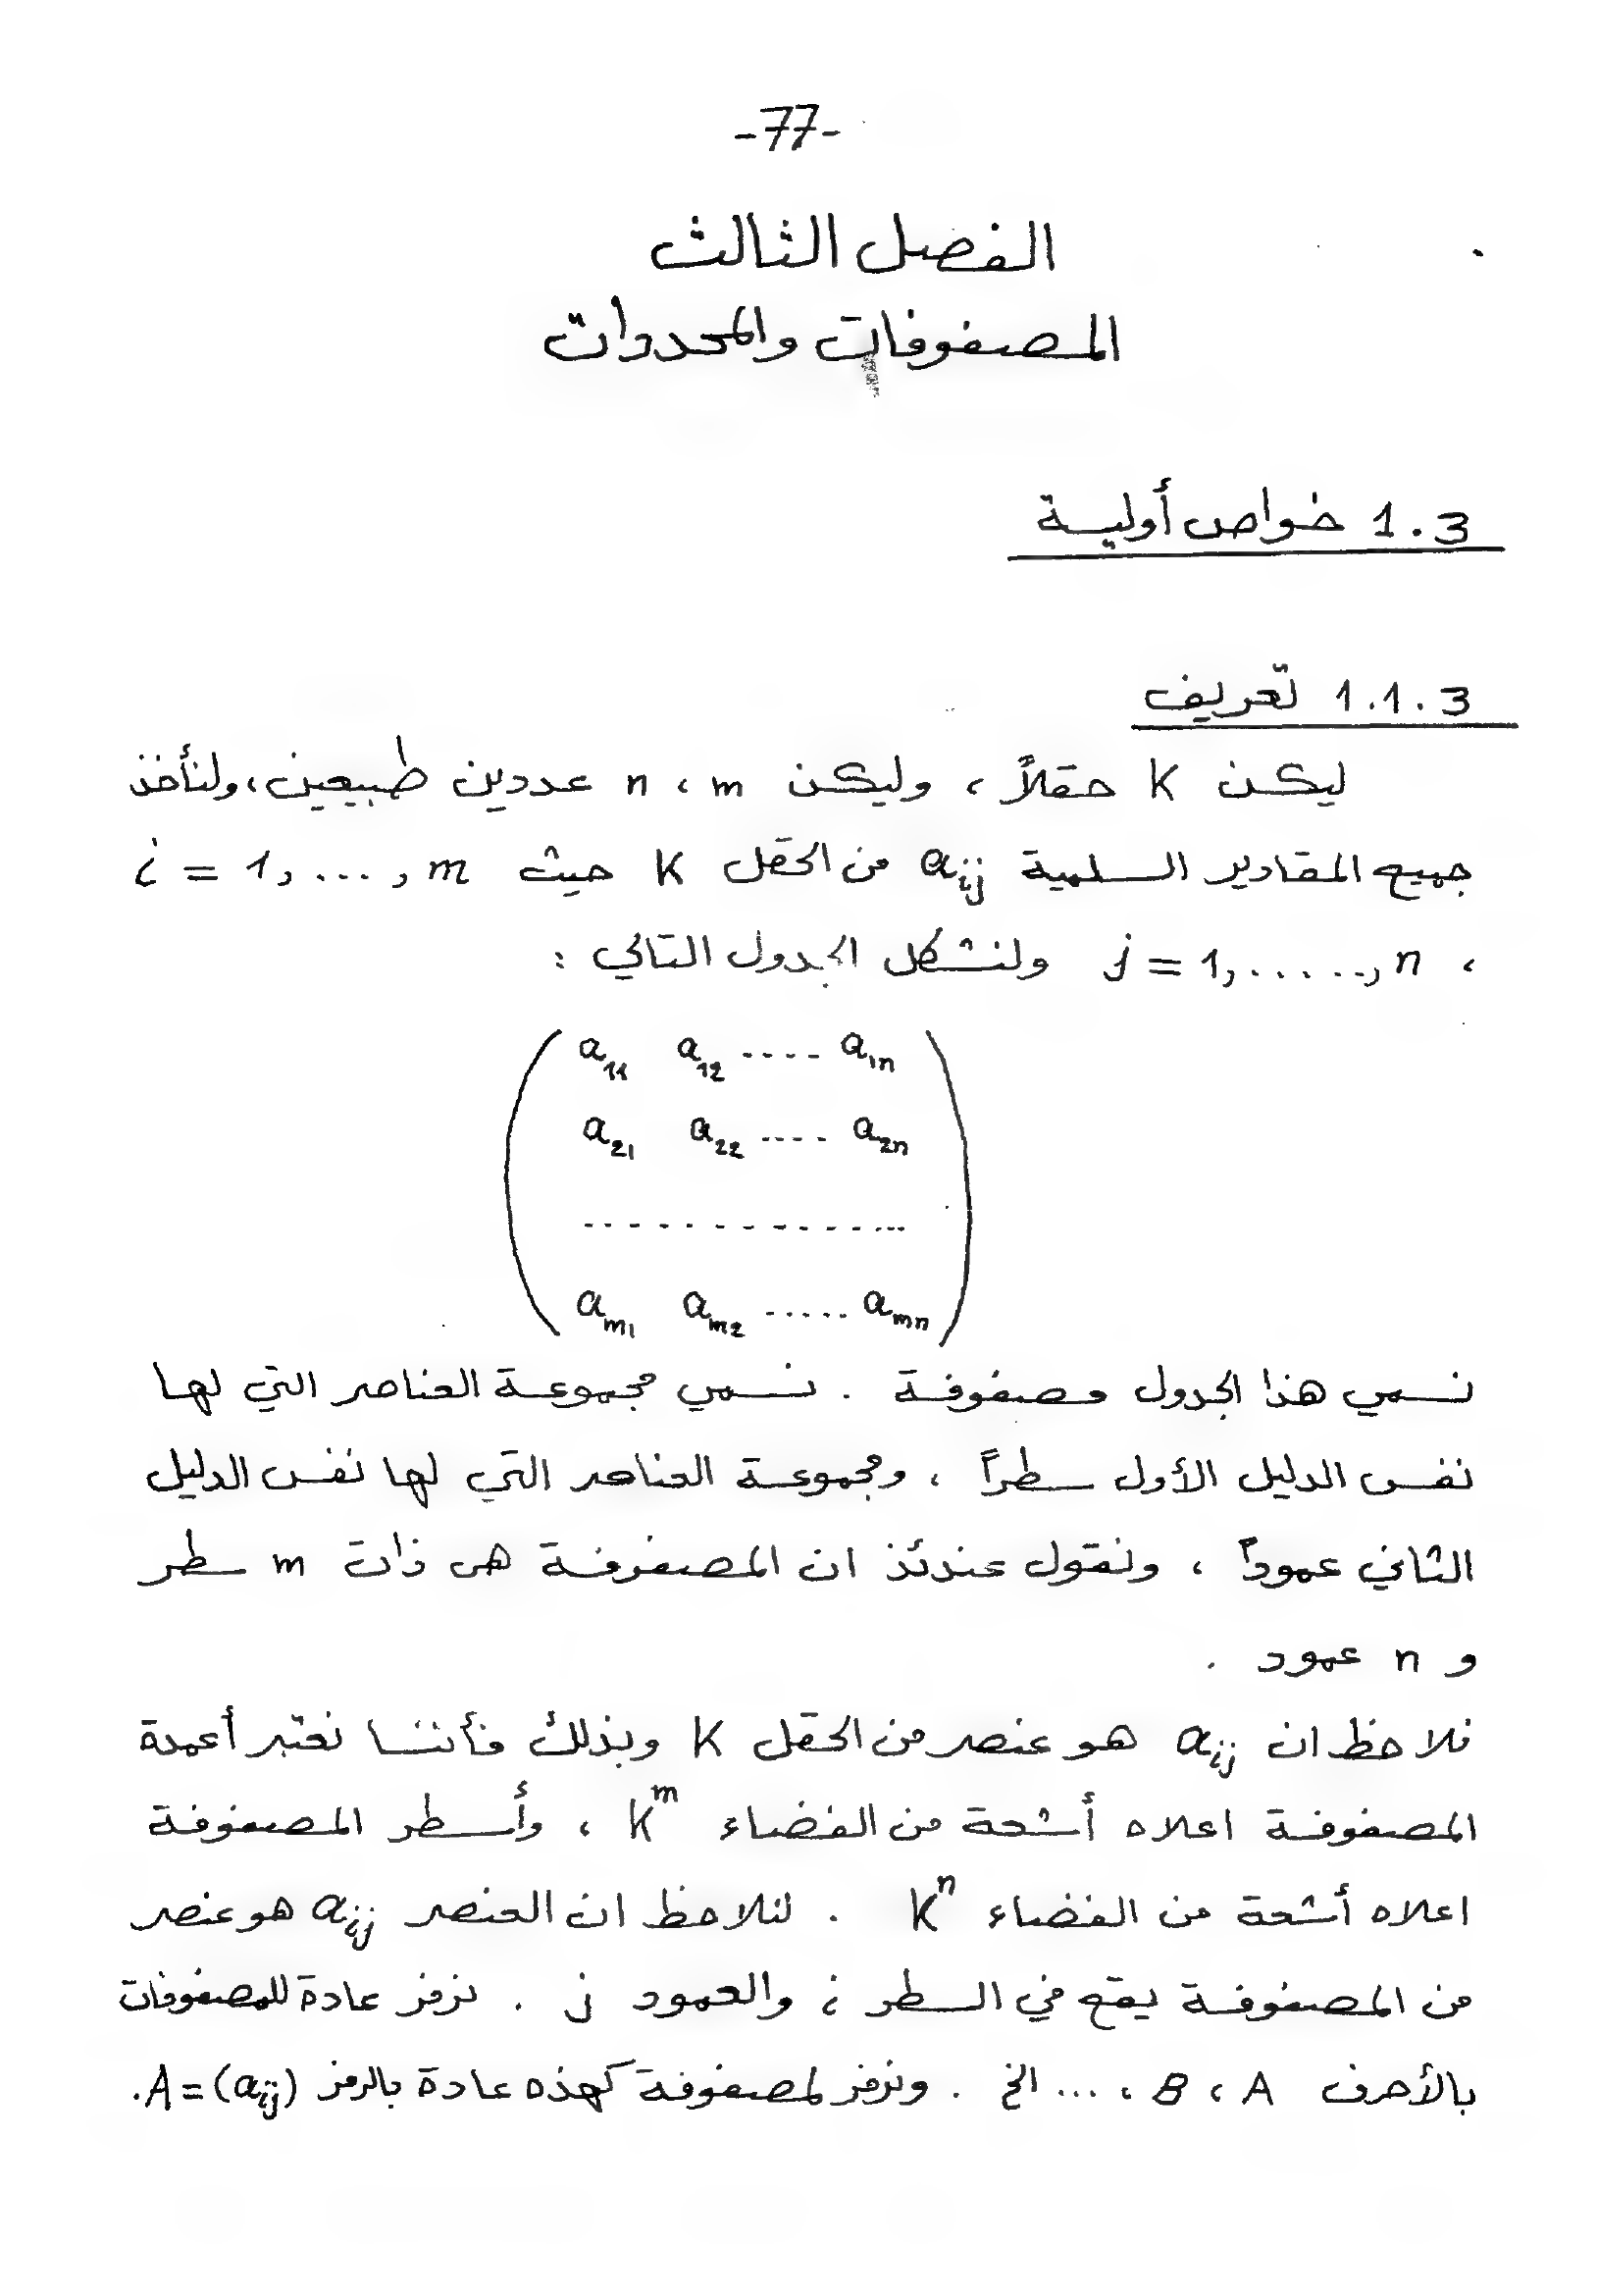 -77-
الفصل الثالث
المصفوفات والمحددات
1.3 خواص أولية
1.1.3 تعريف
ليكن K حقلاً ، وليكن n ، m عددين طبيعين ، ولنأخذ
جميع المقادير السلمية aij من الحقل K حيث i = 1, ... , m
، j = 1, ..... , n ولنشكل الجدول التالي :
a11 a12 .... a1n
a21 a22 .... a2n
..............
am1 am2 ..... amn
نسمي هذا الجدول مصفوفة . نسمي مجموعة العناصر التي لها
نفس الدليل الأول سطراً ، ومجموعة العناصر التي لها نفس الدليل
الثاني عموداً ، ونقول عندئذ ان المصفوفة هي ذات m سطر
و n عمود .
نلاحظ ان aij هو عنصر من الحقل K وبذلك فأننا نعتبر أعمدة
المصفوفة اعلاه أشعة من الفضاء K^m ، وأسطر المصفوفة
اعلاه أشعة من الفضاء K^n . لنلاحظ ان العنصر aij هو عنصر
من المصفوفة يقع في السطر i والعمود j . نرمز عادة للمصفوفات
بالأحرف A ، B ، ... الخ . ونرمز لمصفوفة كهذه عادة بالرمز A = (aij).